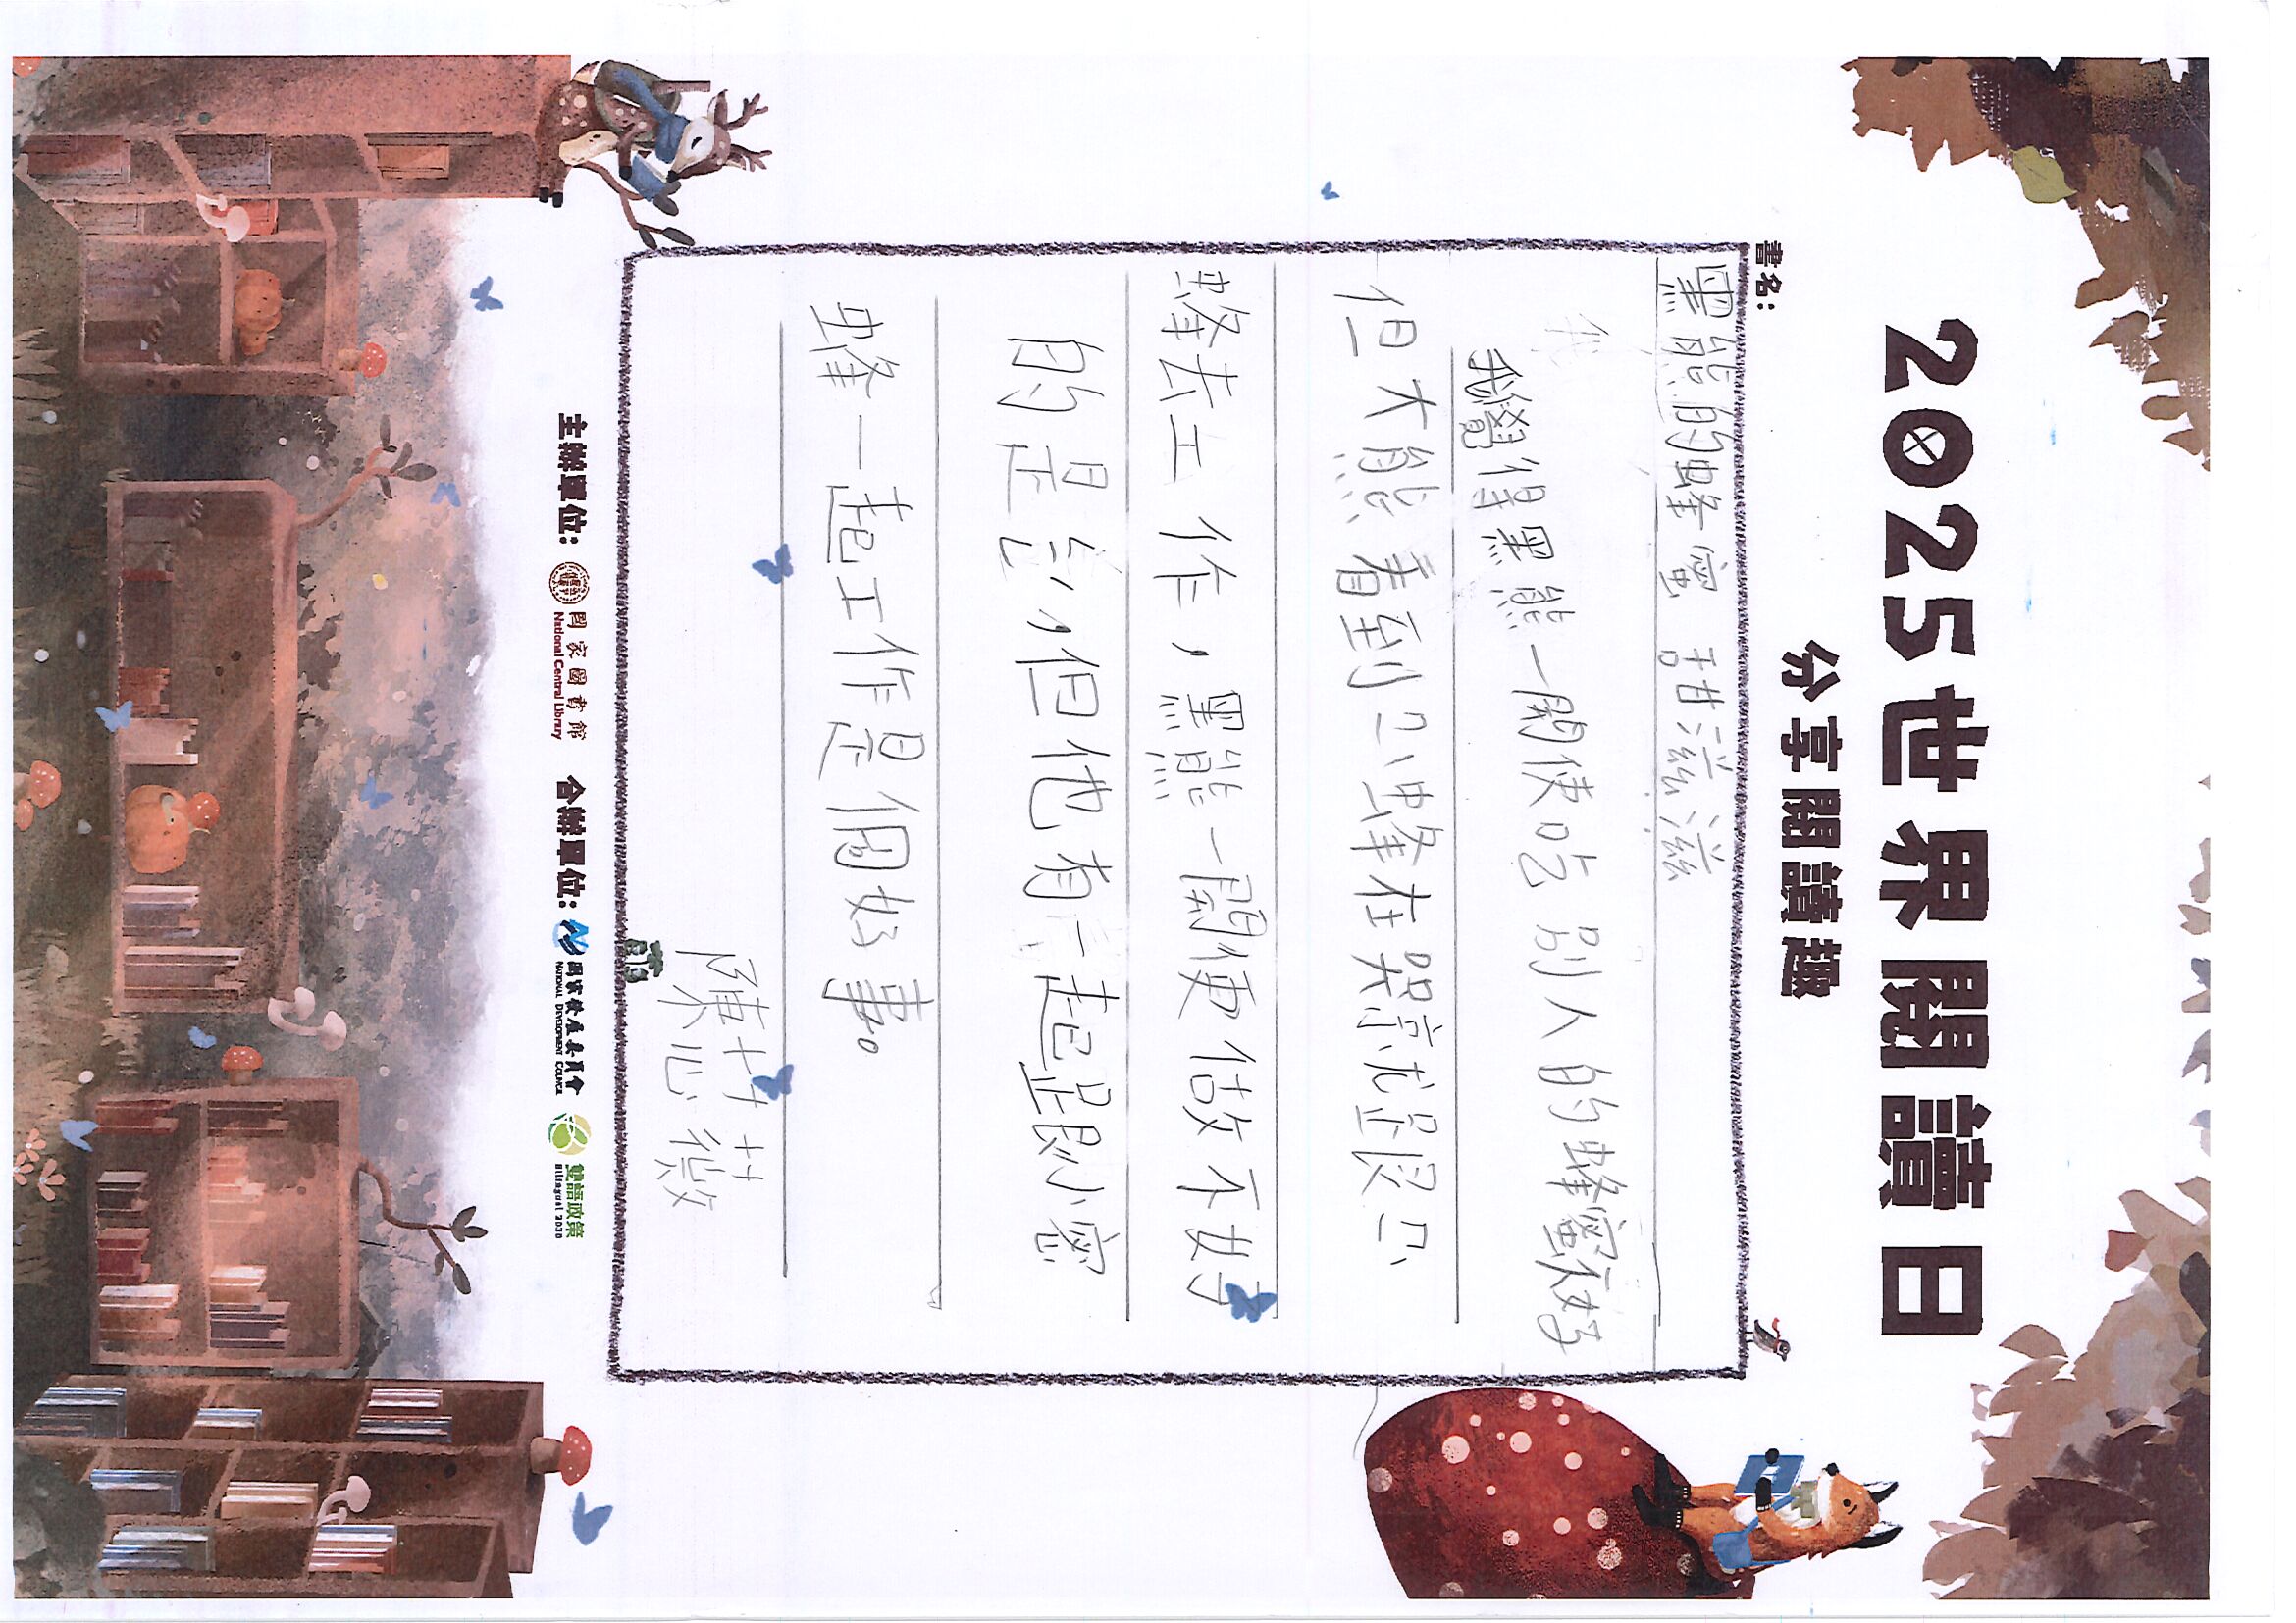 2025世界閱讀日
分享閱讀趣
書名:
黑熊的蜂蜜 甜滋滋
我
我覺得黑熊一開使吃別人的蜂蜜很好
但大熊看到心蜂在
蜂去工作,黑熊一開使估故不好
的是 但他有一起跟小密
蜂一起工作是個好事。
陳芯薇
主辦單位: 國家圖書館 National Central Library 合辦單位: 國家發展委員會 NATIONAL DEVELOPMENT COUNCIL 雙語政策 Bilingual 2030